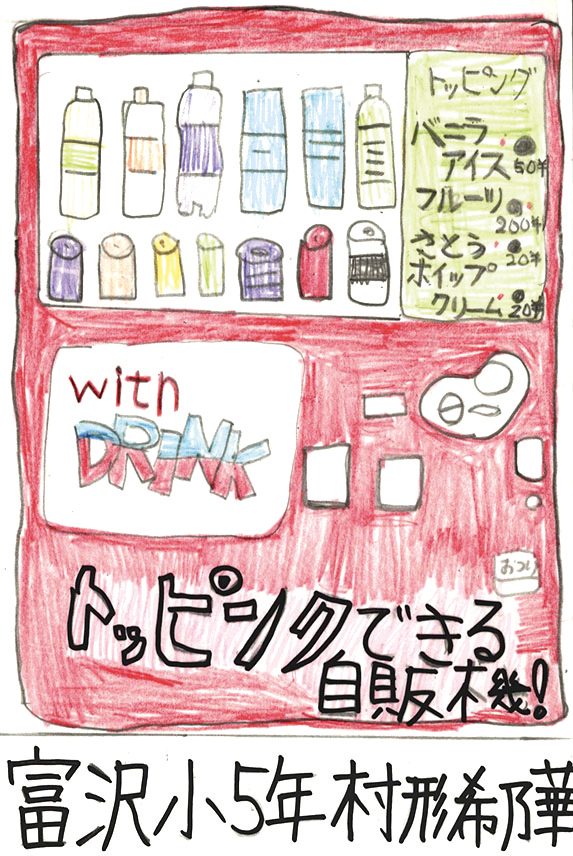 トッピング
バニラ
アイス 50¥
フルーツ
200¥
さとう 20¥
ホイップ
クリーム 20¥
with
DRINK
おつり
トッピングできる
自販機!
富沢小5年村形希乃華